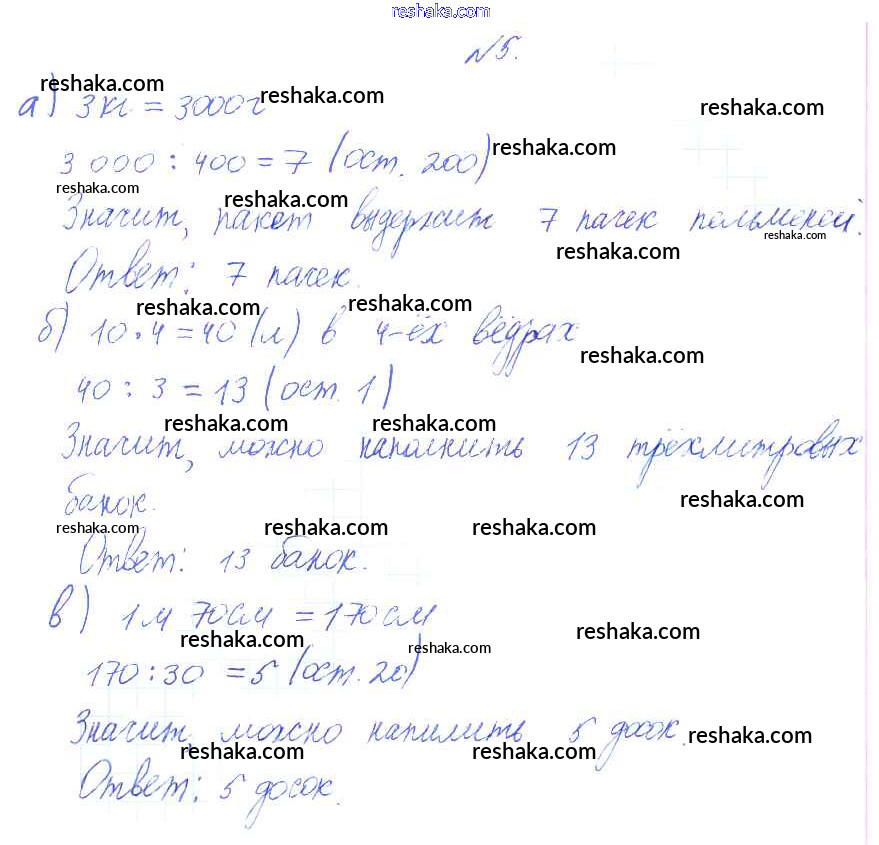 reshaka.com
№5.
reshaka.com reshaka.com reshaka.com
а) 3 кг = 3000 г
3 000 : 400 = 7 (ост. 200) reshaka.com
reshaka.com reshaka.com
Значит, пакет выдержит 7 пачек пельменей.
reshaka.com reshaka.com
Ответ: 7 пачек.
reshaka.com reshaka.com
б) 10 • 4 = 40 (л) в 4-ёх вёдрах
reshaka.com
40 : 3 = 13 (ост. 1)
reshaka.com reshaka.com
Значит, можно наполнить 13 трёхлитровых
банок.
reshaka.com
reshaka.com reshaka.com reshaka.com
Ответ: 13 банок.
в) 1 м 70 см = 170 см
reshaka.com reshaka.com reshaka.com
170 : 30 = 5 (ост. 20)
Значит, можно напилить 5 досок.
reshaka.com reshaka.com reshaka.com
Ответ: 5 досок.